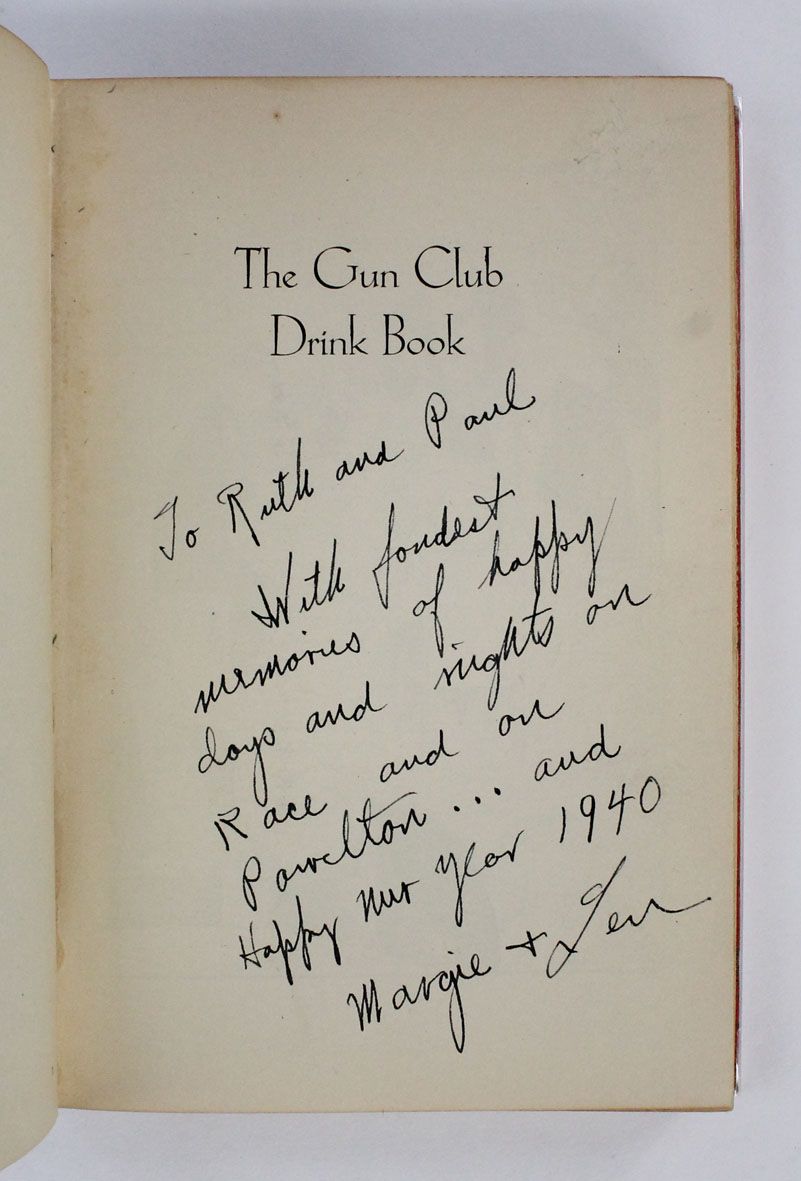 The Gun Club
Drink Book
To Ruth and Paul
With fondest
memories of happy
days and nights on
Race and on
Powelton ... and
Happy New Year 1940
Margie + Len